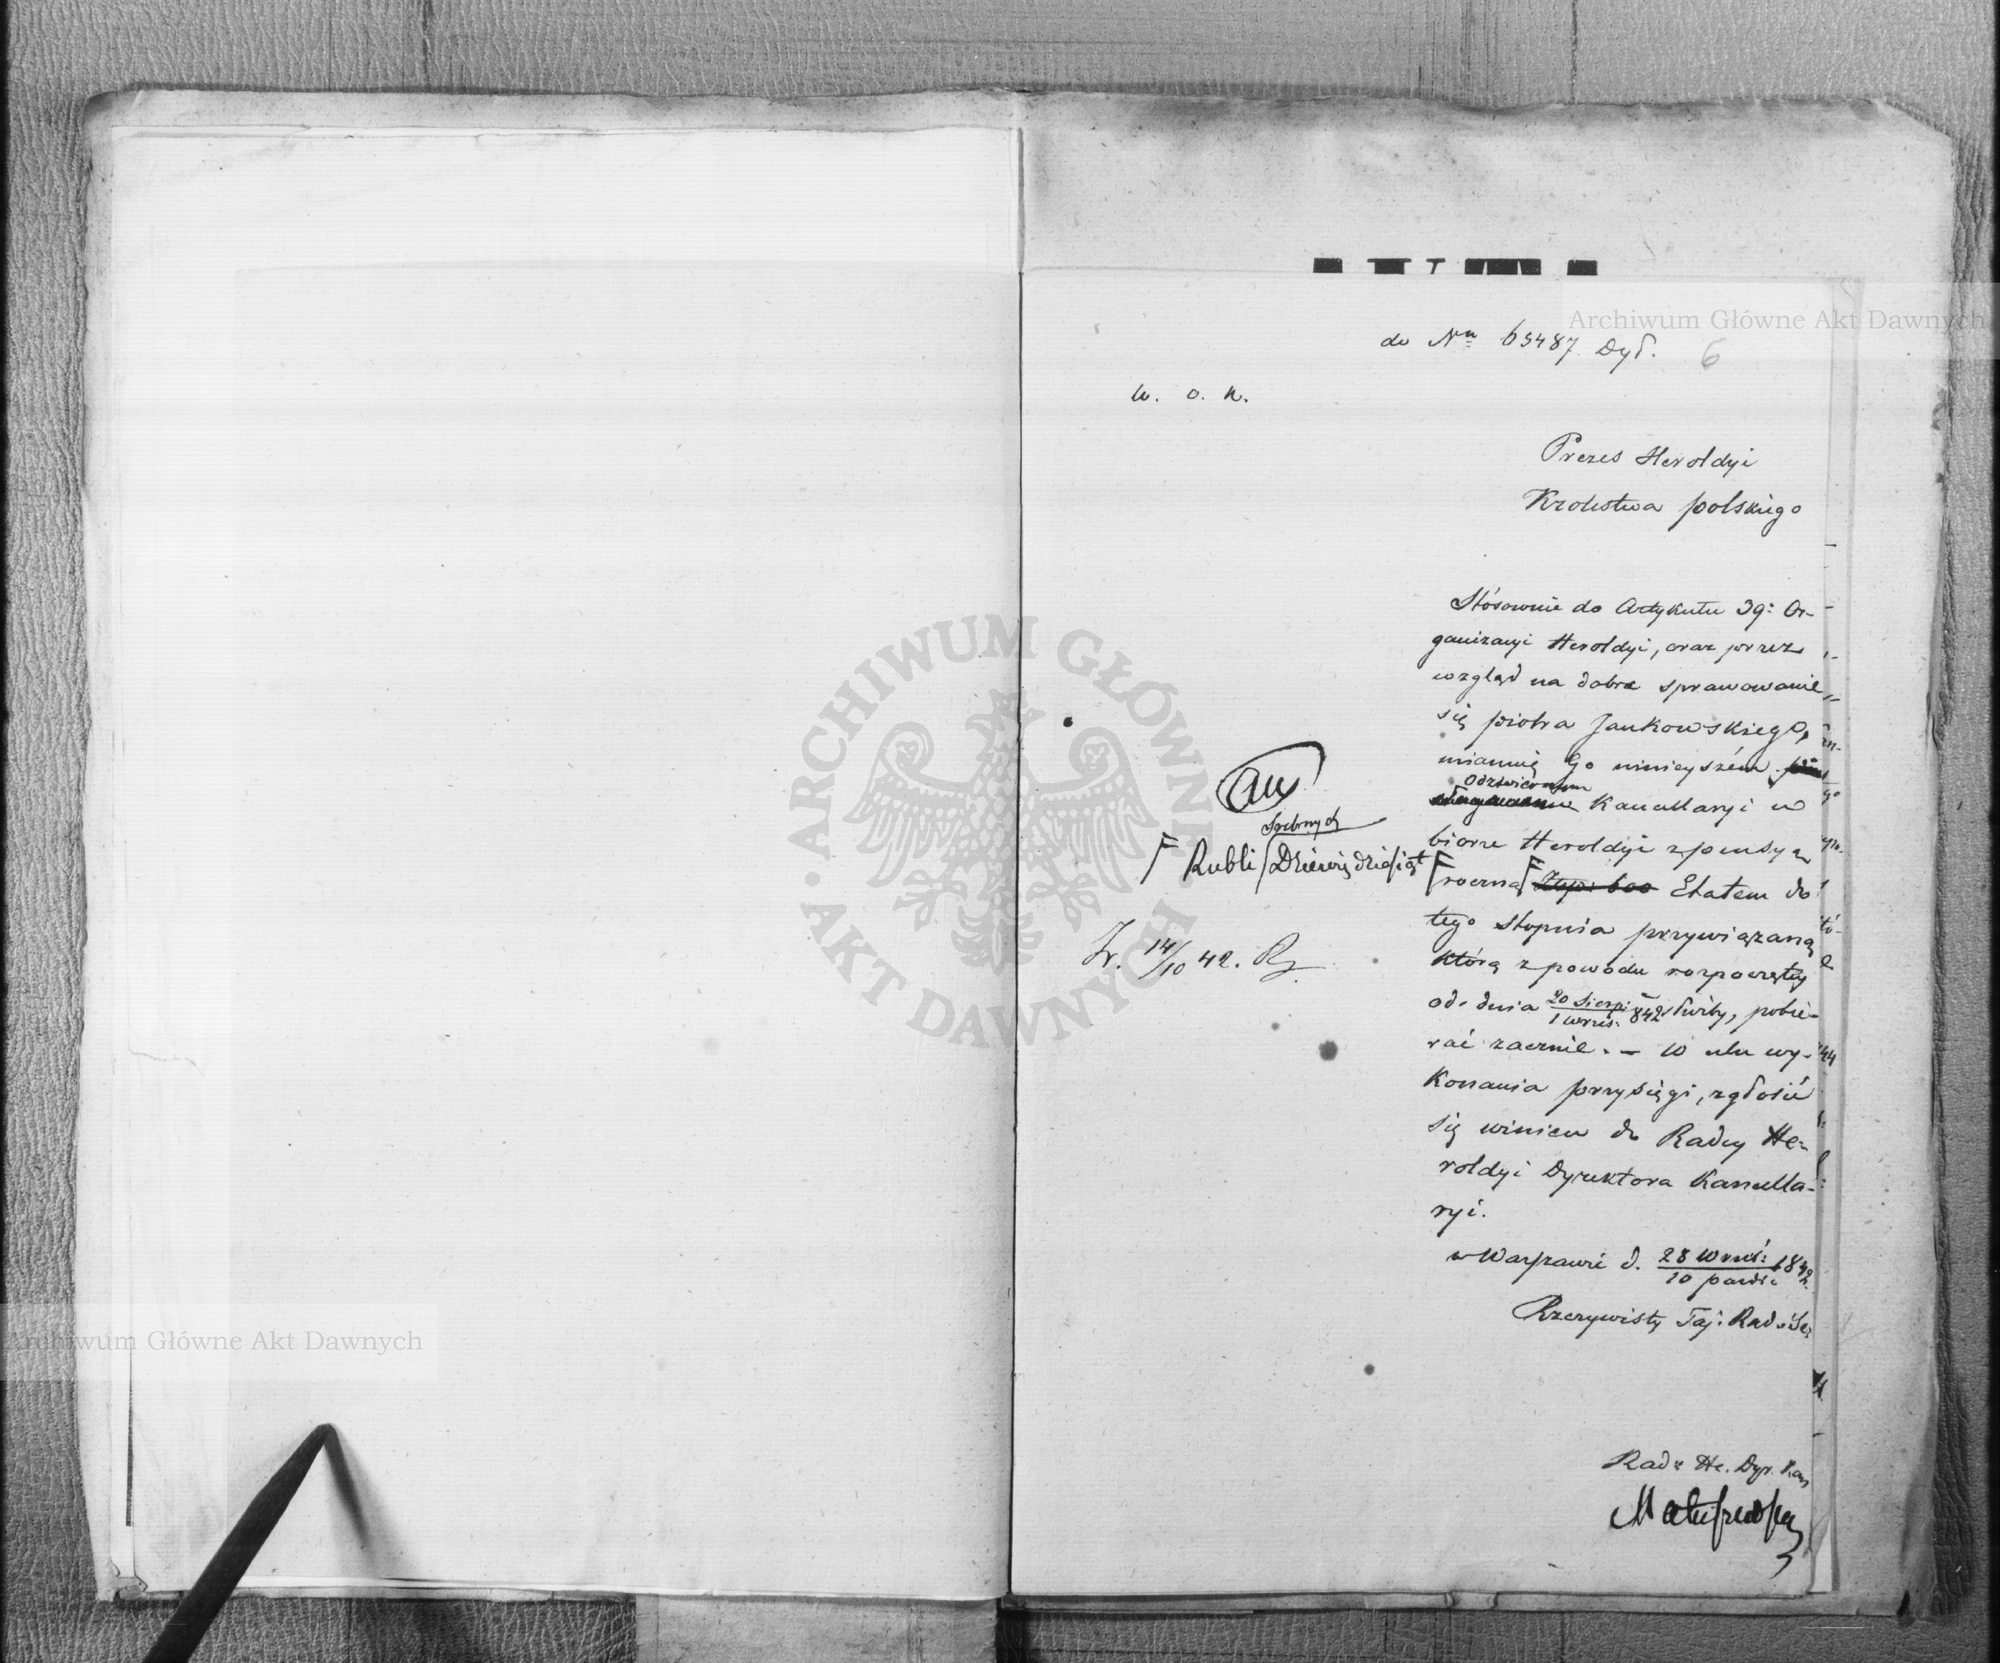 Archiwum Główne Akt Dawnych
do Nru 65487 Dyr.
6
W. O. K.
Prezes Heroldyi
Krolestwa polskiego
Stósownie do Artykułu 39: Or-
ganizacyi Heroldyi, oraz przez
wzgląd na dobre sprawowanie
się piotra Jankowskiego,
mianuię Go ninieyszém
odzwiernym
Kancellaryi w
biorze Heroldyi z pensyą
Srebrnych
Rubli Dziewięćdziesiąt
roczną Złp: 600 Etatem do
tego stopnia przywiązaną
którą z powodu rozpoczętey
od dnia 20 Sierp: / 1 wrześ: 842 służby, pobie-
rać zacznie. – W celu wy-
konania przysięgi, zgłosić
się winien do Radcy He-
roldyi Dyrektora Kancella-
ryi.
w Warszawie d. 28 Wrześ: / 10 paździ 1842.
Rzeczywisty Taj: Radca
14/10 42.
Radca He. Dyr. Kan
ARCHIWUM GŁÓWNE
AKT DAWNYCH
Archiwum Główne Akt Dawnych